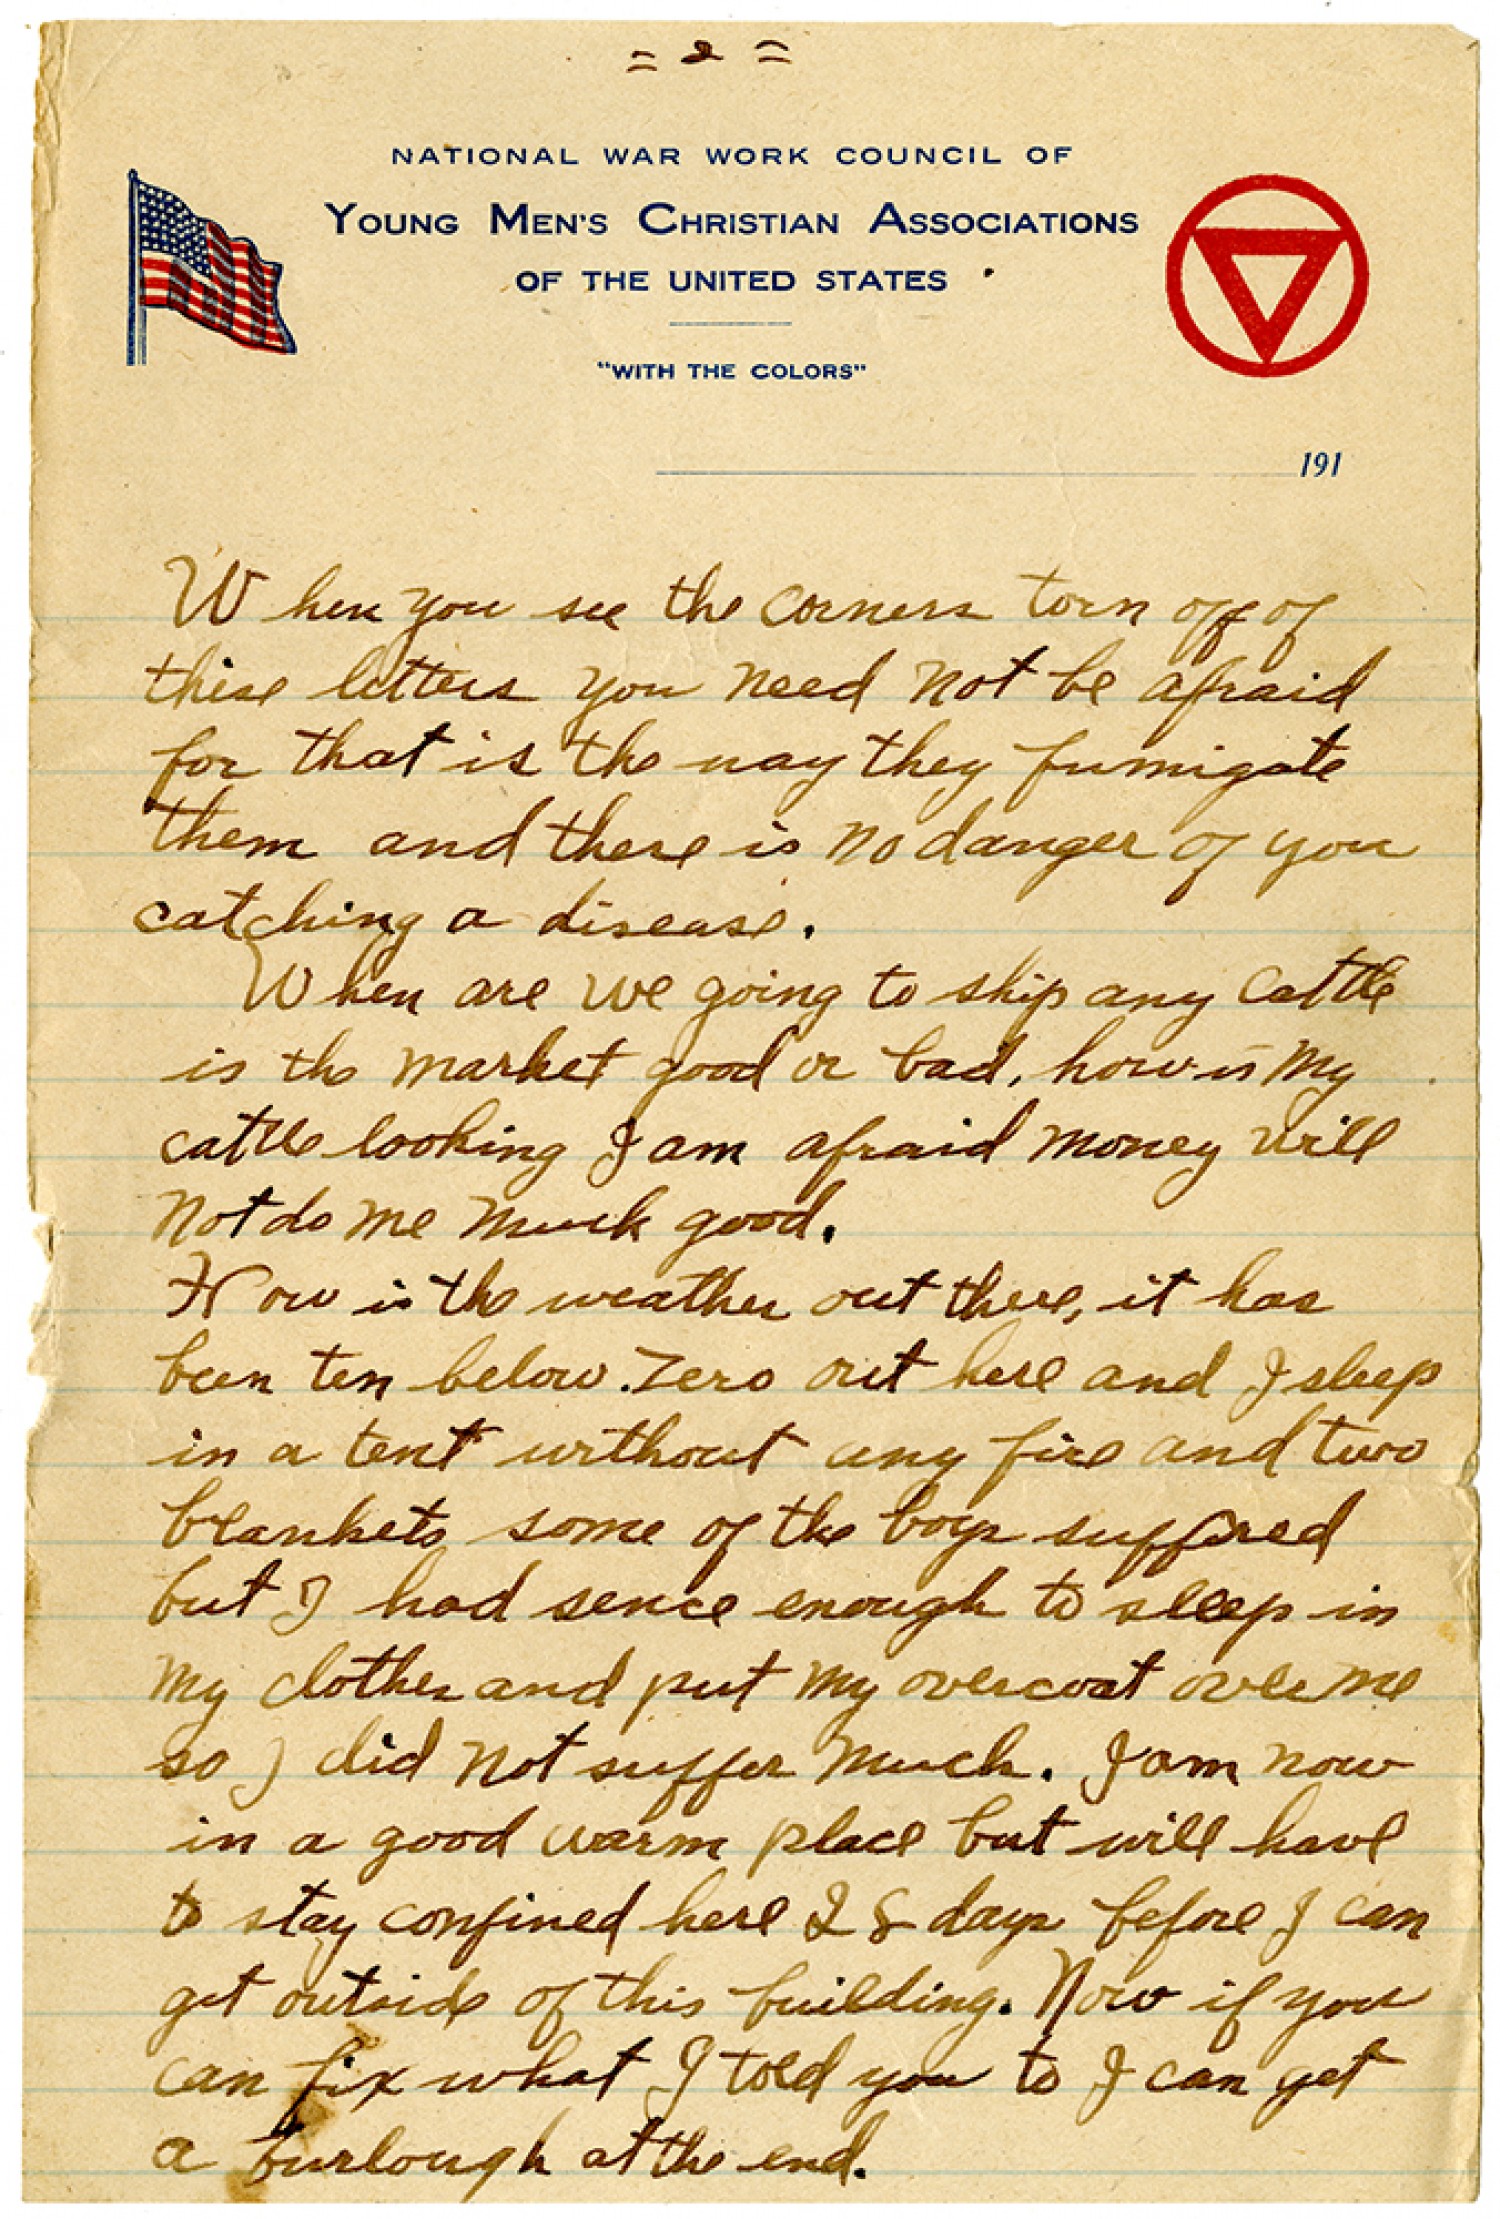 = 2 =
NATIONAL WAR WORK COUNCIL OF
YOUNG MEN'S CHRISTIAN ASSOCIATIONS
OF THE UNITED STATES
"WITH THE COLORS"
191
When you see the corners torn off of
these letters you need not be afraid
for that is the way they fumigate
them and there is no danger of you
catching a disease.
When are we going to ship any cattle
is the market good or bad, how is my
cattle looking I am afraid money will
not do me much good.
How is the weather out there, it has
been ten below zero out here and I sleep
in a tent without any fire and two
blankets some of the boys suffered
but I had sence enough to sleep in
my clothes and put my overcoat over me
so I did not suffer much. I am now
in a good warm place but will have
to stay confined here 28 days before I can
get outside of this building. Now if you
can fix what I told you to I can get
a furlough at the end.